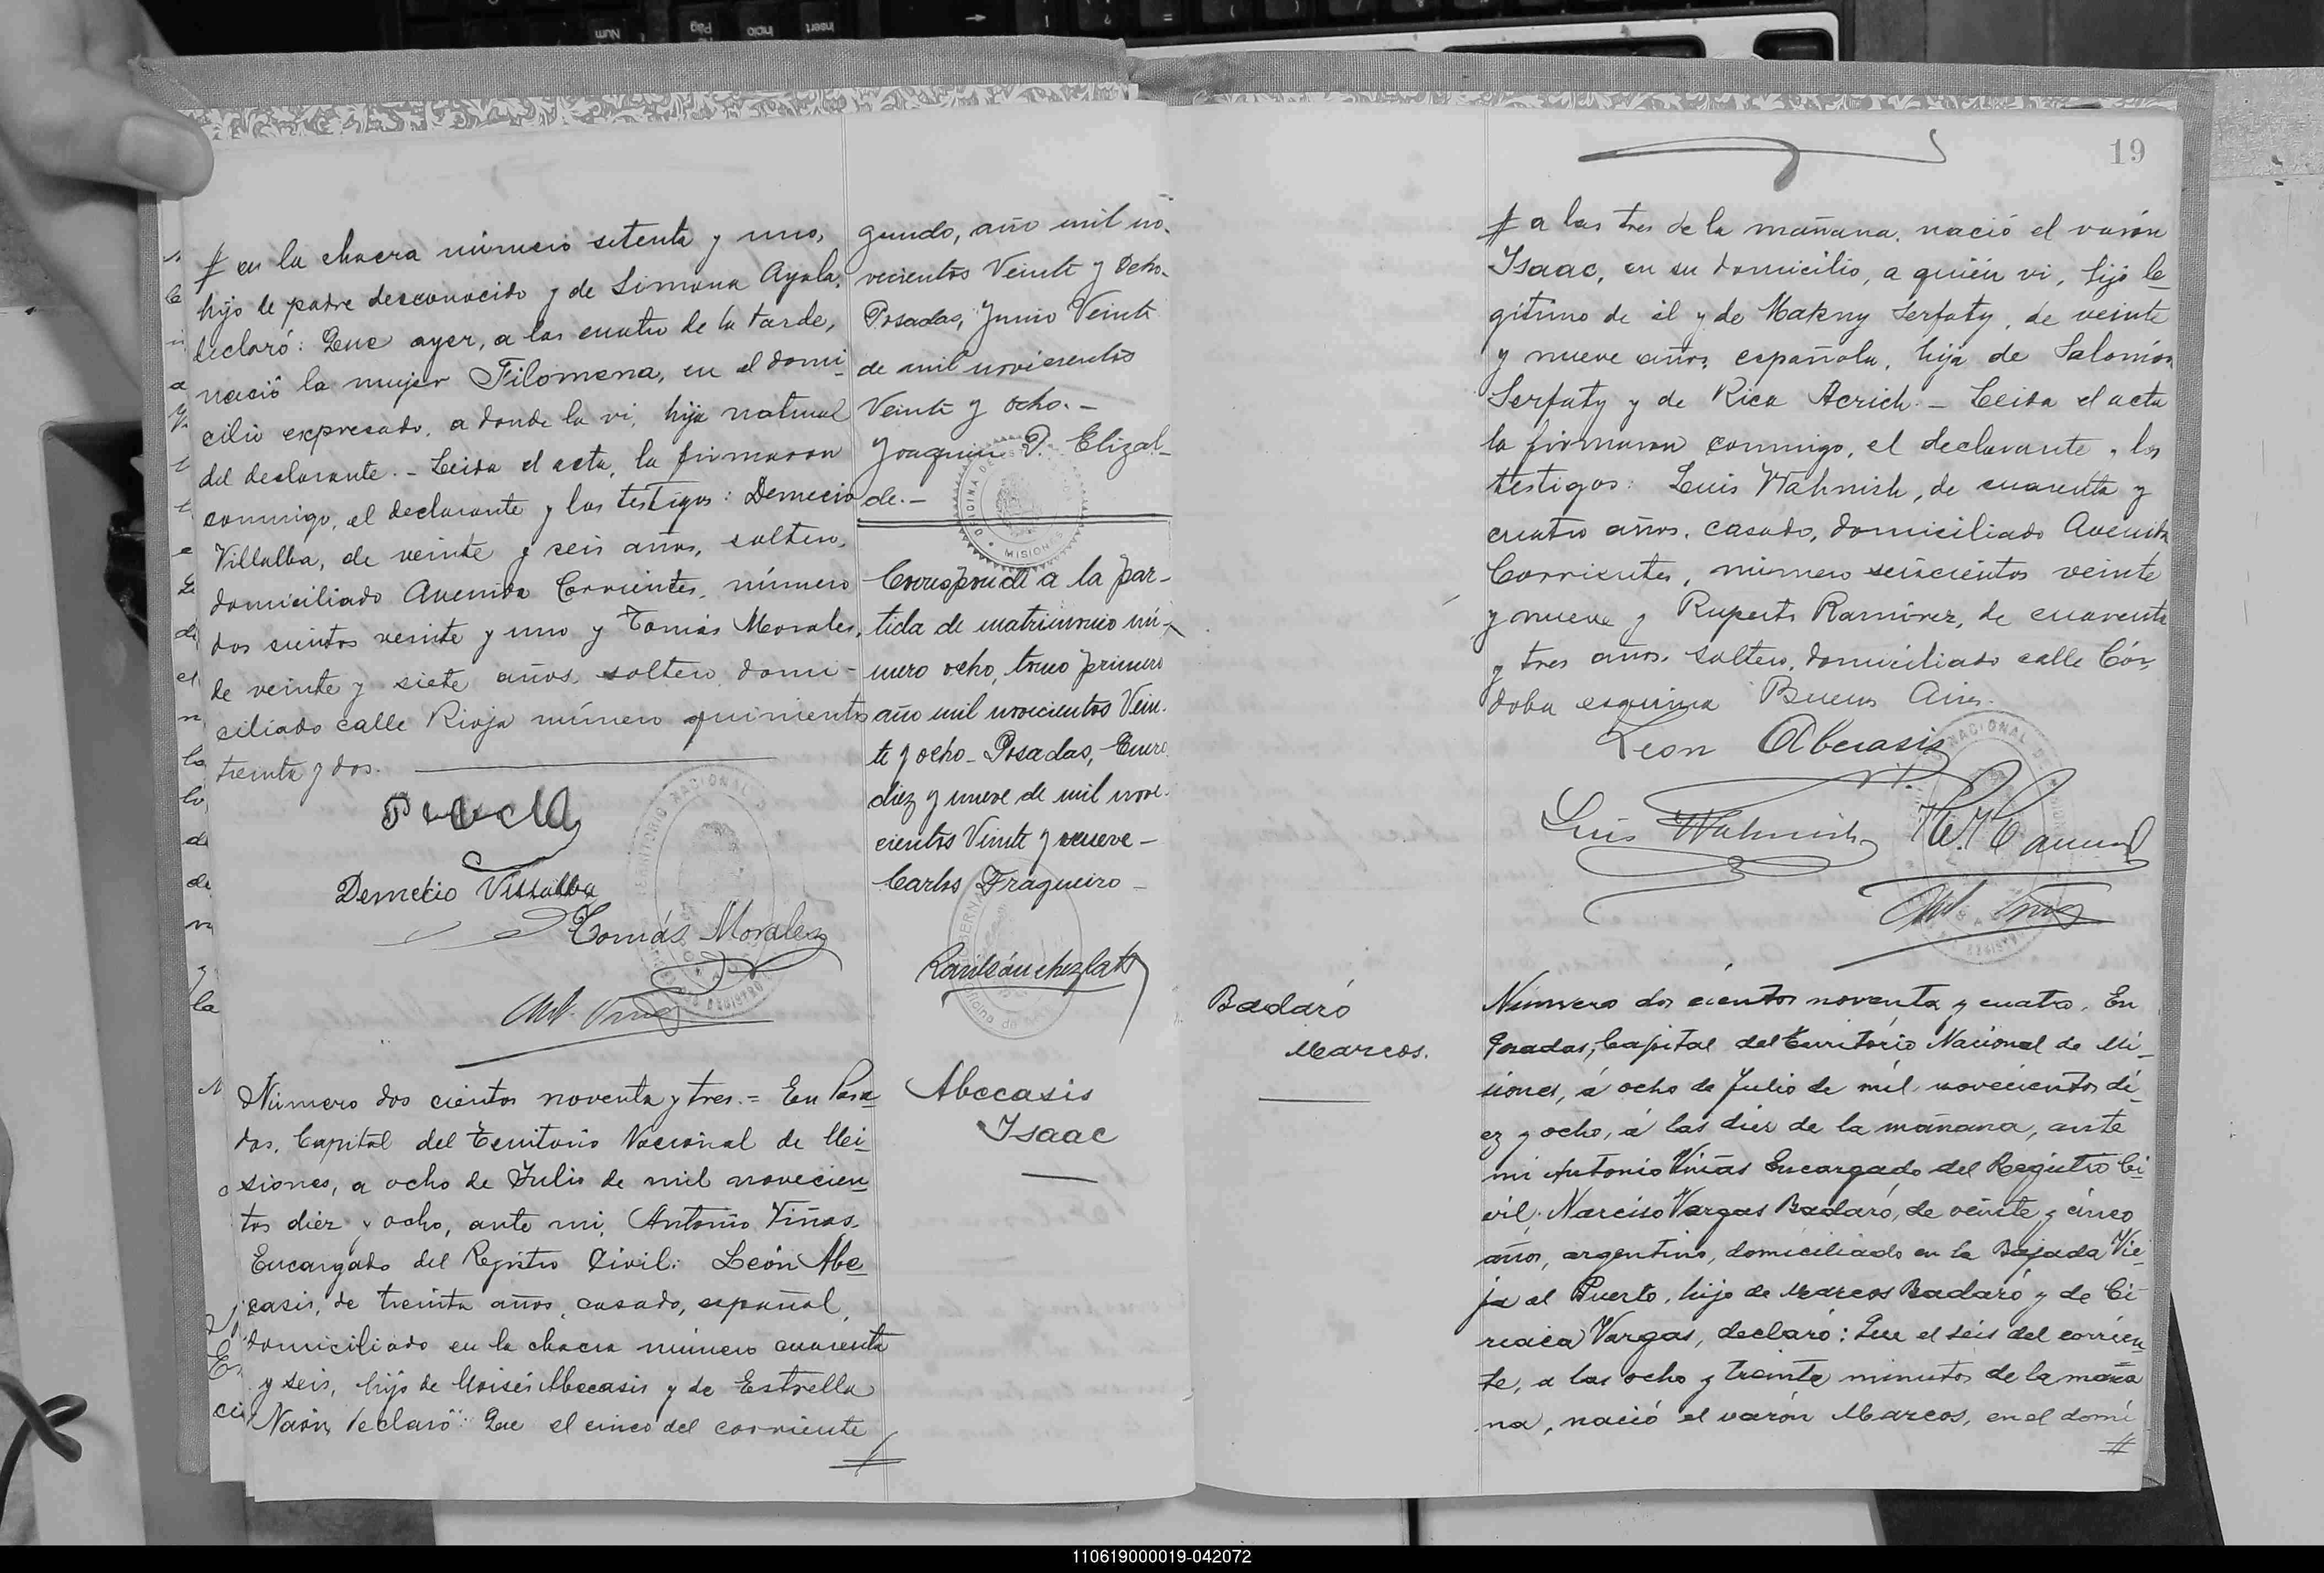 # en la chacra número setenta y uno,
hijo de padre desconocido y de Simona Ayala,
declaró: Que ayer, a las cuatro de la tarde,
nació la mujer Filomena, en el domi-
cilio expresado, a donde la vi, hija natural
del declarante. - Leida el acta, la firmaron
conmigo, el declarante y los testigos: Demecio
Villalba, de veinte y seis años, soltero,
domiciliado Avenida Corrientes, número
dos cientos veinte y uno y Tomás Morales,
de veinte y siete años, soltero, domi-
ciliado calle Rioja número quinientos
treinta y dos.
Demecio Villalba
Tomás Morales
Número dos cientos noventa y tres. = En Posa-
das, Capital del Territorio Nacional de Mi-
siones, a ocho de Julio de mil novecien-
tos diez y ocho, ante mi, Antonio Viñas,
Encargado del Registro Civil: León Abe-
casis, de treinta años, casado, español,
domiciliado en la chacra número cuarenta
y seis, hijo de Moisés Abecasis y de Estrella
Naón, declaró: Que el cinco del corriente
#
gundo, año mil no-
vecientos Veinte y Ocho-
Posadas, Junio Veinte
de mil novecientos
Veinte y ocho. -
Joaquin P. Elizal-
de. -
MISIONES
Corresponde a la par-
tida de matrimonio nú-
mero ocho, tomo primero
año mil novecientos Vein-
te y ocho - Posadas, Enero
diez y nueve de mil nove-
cientos Veinte y nueve -
Carlos Fragueiro -
Abecasis
Isaac
19
# a las tres de la mañana, nació el varón
Isaac, en su domicilio, a quién vi, hijo le-
gitimo de él y de Makny Serfaty, de veinte
y nueve años, española, hija de Salomón
Serfaty y de Rica Acrich. - Leida el acta
la firmaron conmigo, el declarante y los
testigos: Luis Wahnish, de cuarenta y
cuatro años, casado, domiciliado Avenida
Corrientes, número seiscientos veinte
y nueve y Ruperto Ramirez, de cuarenta
y tres años, soltero, domiciliado calle Cór-
doba esquina Buenos Aires.
Leon Abecasis
Luis Wahnish
Badaró
Marcos.
Número dos cientos noventa y cuatro. En
Posadas, Capital del Territorio Nacional de Mi-
siones, á ocho de Julio de mil novecientos di-
ez y ocho, á las diez de la mañana, ante
mi Antonio Viñas Encargado del Registro Ci-
vil: Narciso Vargas Badaró, de veinte y cinco
años, argentino, domiciliado en la Bajada Vie-
ja al Puerto, hijo de Marcos Badaró y de Ci-
riaca Vargas, declaró: Que el seis del corrien-
te, a las ocho y treinta minutos de la maña-
na, nació el varón Marcos, en el domi-
#
110619000019-042072